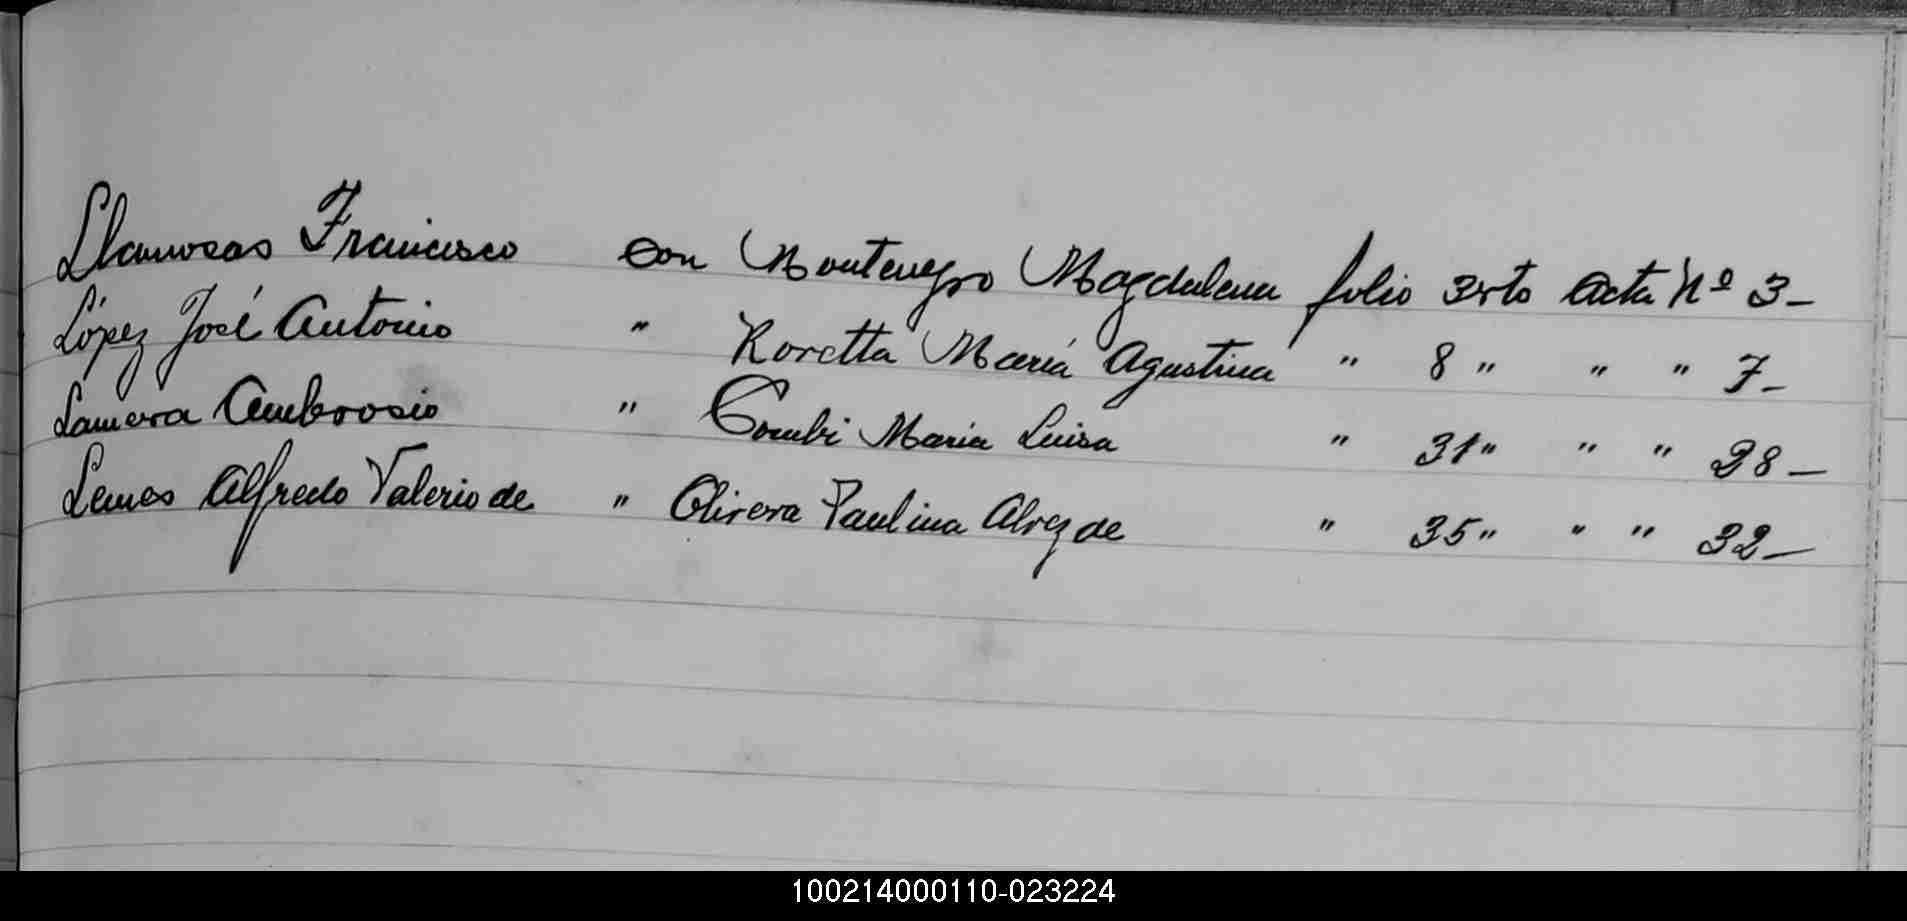 Llanosas Francisco con Montenegro Magdalena folio 3 vto Acta Nº 3-
López José Antonio " Roretta María Agustina " 8 " " " 7-
Lamera Ambrosio " Combi Maria Luisa " 31 " " " 28-
Lemes Alfredo Valerio de " Olivera Paulina Alvez de " 35 " " " 32-
100214000110-023224